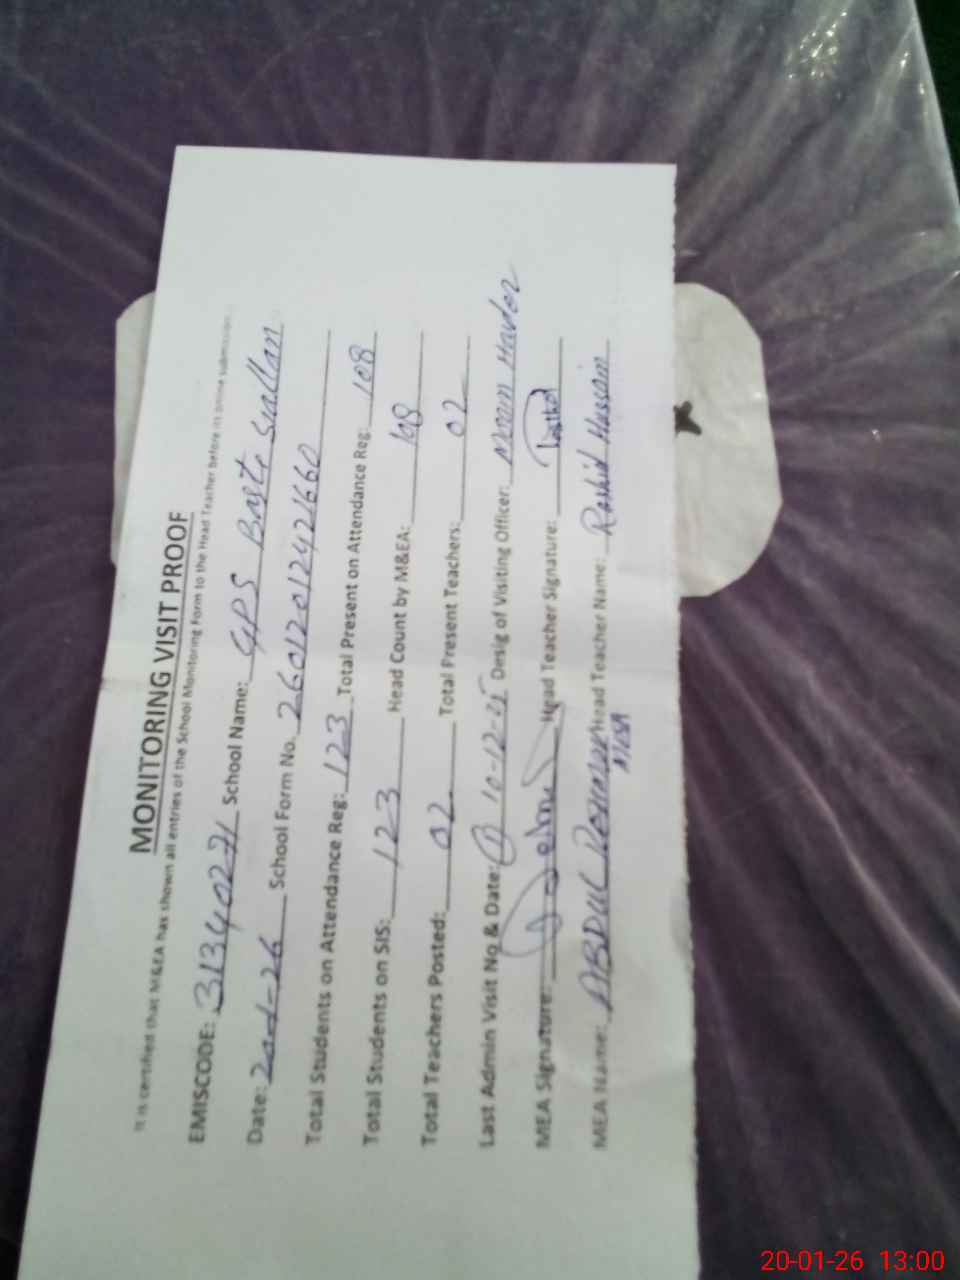 MONITORING VISIT PROOF
It is certified that M&EA has shown all entries of the School Monitoring Form to the Head Teacher before its online submission.
EMISCODE: 31340271 School Name: GPS Basti Siallan
Date: 20-1-26 School Form No. 26012012421660
Total Students on Attendance Reg: 123 Total Present on Attendance Reg: 108
Total Students on SIS: 123 Head Count by M&EA: 108
Total Teachers Posted: 02 Total Present Teachers: 02
Last Admin Visit No & Date: 1 10-12-25 Desig of Visiting Officer:
MEA Signature: Head Teacher Signature: Rashid
MEA Name: ABDUL REHMAN Head Teacher Name: Rashid Hussain
20-01-26 13:00